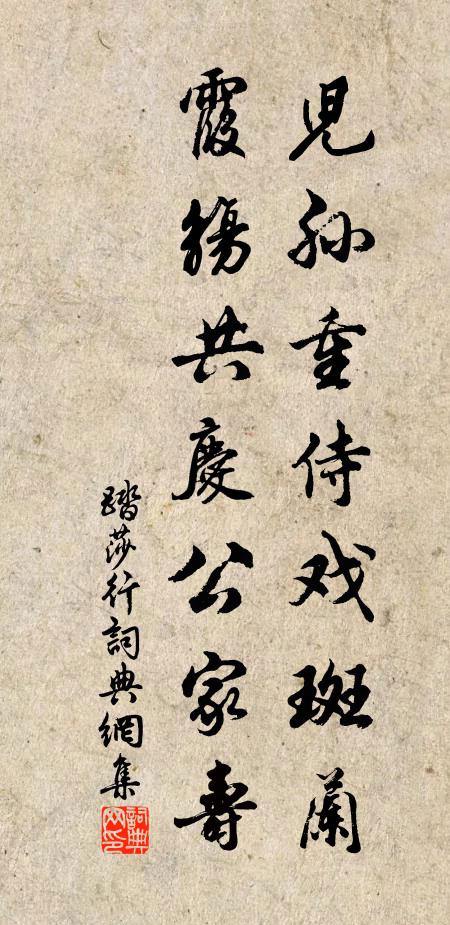 児孙重侍戏斑蘭
霞觴共慶公家壽
踏莎行詞典網集
詞典网印